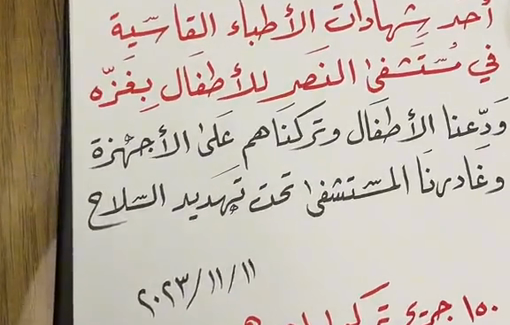 أحد شهادات الأطباء القاسية
في مُسْتَشفى النَصر للأطفَال بِغَزّه
وَدّعنا الأطفَال وتركنَاهم عَلىٰ الأجهْزة
وغَادرنَا المسْتشفىٰ تحت تهديد السّلاح
٢٠٢٣/١١/١١
١٥٠